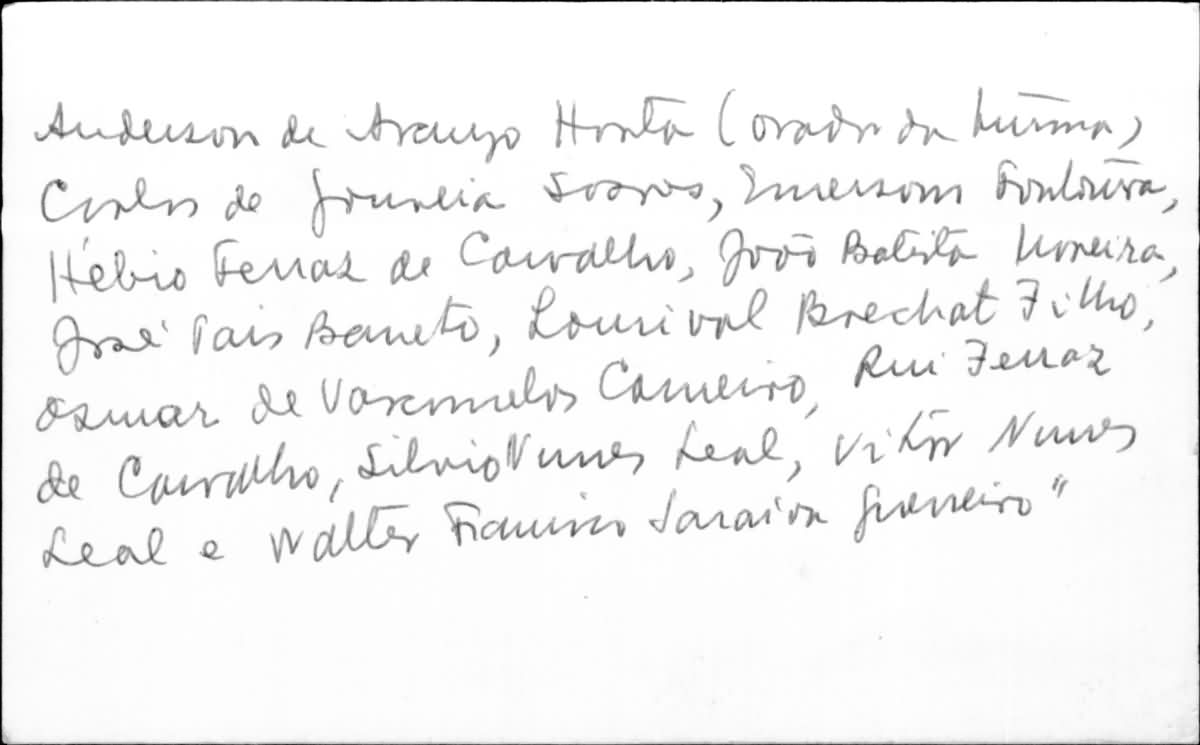 Anderson de Araujo Horta (orador da turma)
Carlos de Gouveia Soares, Emerson Fontoura,
Hébio Ferraz de Carvalho, João Batista Moreira,
José Pais Barreto, Lourival Brechat Filho,
Osmar de Vasconcelos Carneiro, Rui Ferraz
de Carvalho, Silvio Nunes Leal, Vitor Nunes
Leal e Walter Francisco Saraiva Guerreiro"